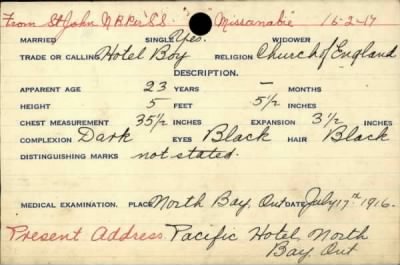 From St John N B Per S.S. " Missanabie 16-2-17
MARRIED SINGLE Yes. WIDOWER
TRADE OR CALLING Hotel Boy RELIGION Church of England
DESCRIPTION.
APPARENT AGE 23 YEARS - MONTHS
HEIGHT 5 FEET 5½ INCHES
CHEST MEASUREMENT 35½ INCHES EXPANSION 3½ INCHES
COMPLEXION Dark EYES Black HAIR Black
DISTINGUISHING MARKS not stated.
MEDICAL EXAMINATION. PLACE North Bay, Ont DATE July 17th 1916.
Present Address. Pacific Hotel, North
Bay, Ont